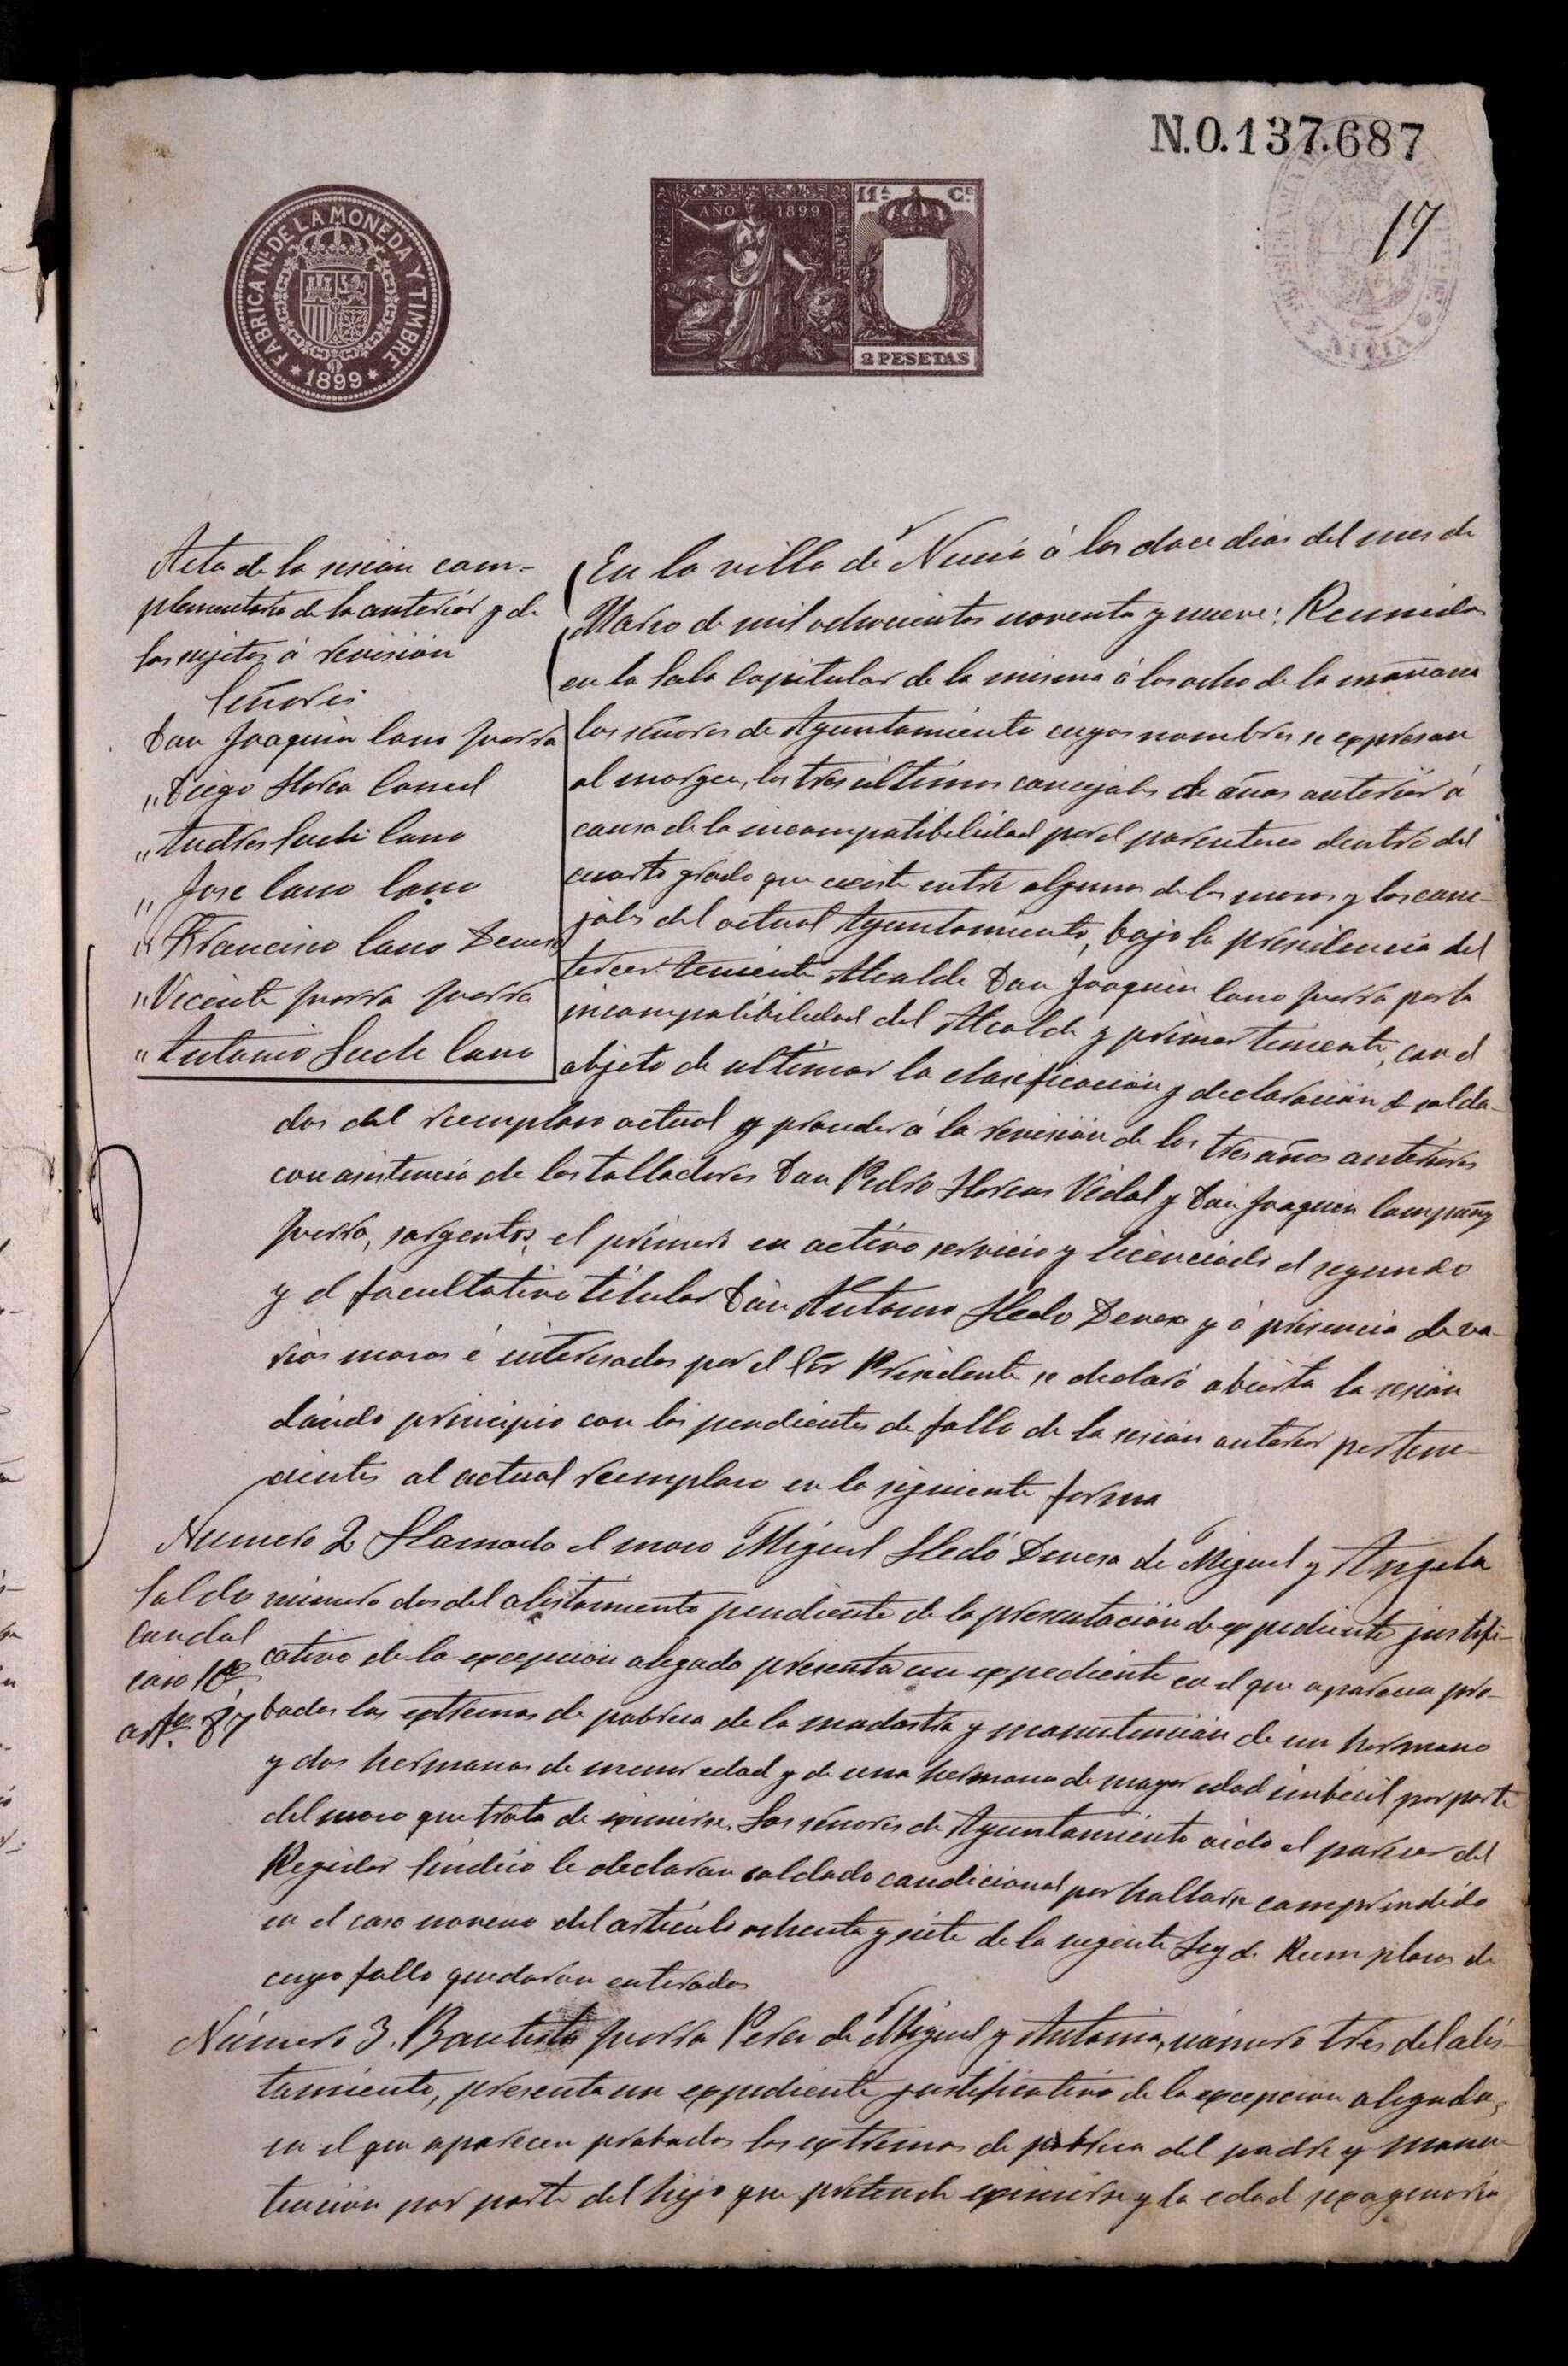 N.0.137.687
17
FABRICA NL. DE LA MONEDA Y TIMBRE
1899
AÑO 1899
11ª Cᵉ
2 PESETAS
Acta de la sesión com-
plementaria de la anterior y de
los sujetos á revisión
Señores
Don Joaquin Cano
" Diego Llorca
" Andres Cano
" Jose Cano Cano
" Francisco Cano Devesa
" Vicente
" Antonio Cano
En la villa de Nucia á los doce dias del mes de
Marzo de mil ochocientos noventa y nueve: Reunidos
en la Sala Capitular de la misma á las ocho de la mañana
los señores de Ayuntamiento cuyos nombres se expresan
al margen, los tres últimos concejales de años anterior á
causa de la incompatibilidad por el parentesco dentro del
cuarto grado que existe entre algunos de los mozos y los conce-
jales del actual Ayuntamiento, bajo la presidencia del
tercer teniente Alcalde Don Joaquin Cano por la
incompatibilidad del Alcalde y primer teniente, con el
objeto de ultimar la clasificación y declaración de solda-
dos del reemplazo actual y proceder á la revisión de los tres años anteriores
con asistencia de los talladores Don Pedro Llorens Vidal y Don Joaquin
sargentos, el primero en activo servicio y licenciado el segundo
y el facultativo titular Don Antonio Lledo Devesa y á presencia de va-
rios mozos é interesados por el Sor Presidente se declaró abierta la sesión
dando principio con los pendientes de fallo de la sesión anterior pertene-
cientes al actual reemplazo en la siguiente forma
Numero 2 Llamado el mozo Miguel Lledó Devesa de Miguel y Angela
Soldo
condal
caso 10º
artº 87
número dos del alistamiento pendiente de la presentación de expediente justifi-
cativo de la excepción alegada presenta un expediente en el que aparecen pro-
bados los extremos de pobreza de la madastra y manutención de un hermano
y dos hermanas de menor edad y de una hermana de mayor edad imbécil por parte
del mozo que trata de eximirse. Los señores de Ayuntamiento oido el parecer del
Regidor Sindico le declaran soldado condicional por hallarse comprendido
en el caso noveno del artículo ochenta y siete de la vigente Ley de Reemplazos de
cuyo fallo quedaron enterados
Número 3. Bautista de Miguel y Antonia, número tres del alis-
tamiento, presenta un expediente justificativo de la excepcion alegada,
en el que aparecen probados los extremos de pobreza del padre y manu-
tención por parte del hijo que pretende eximirse y la edad sexagenaria